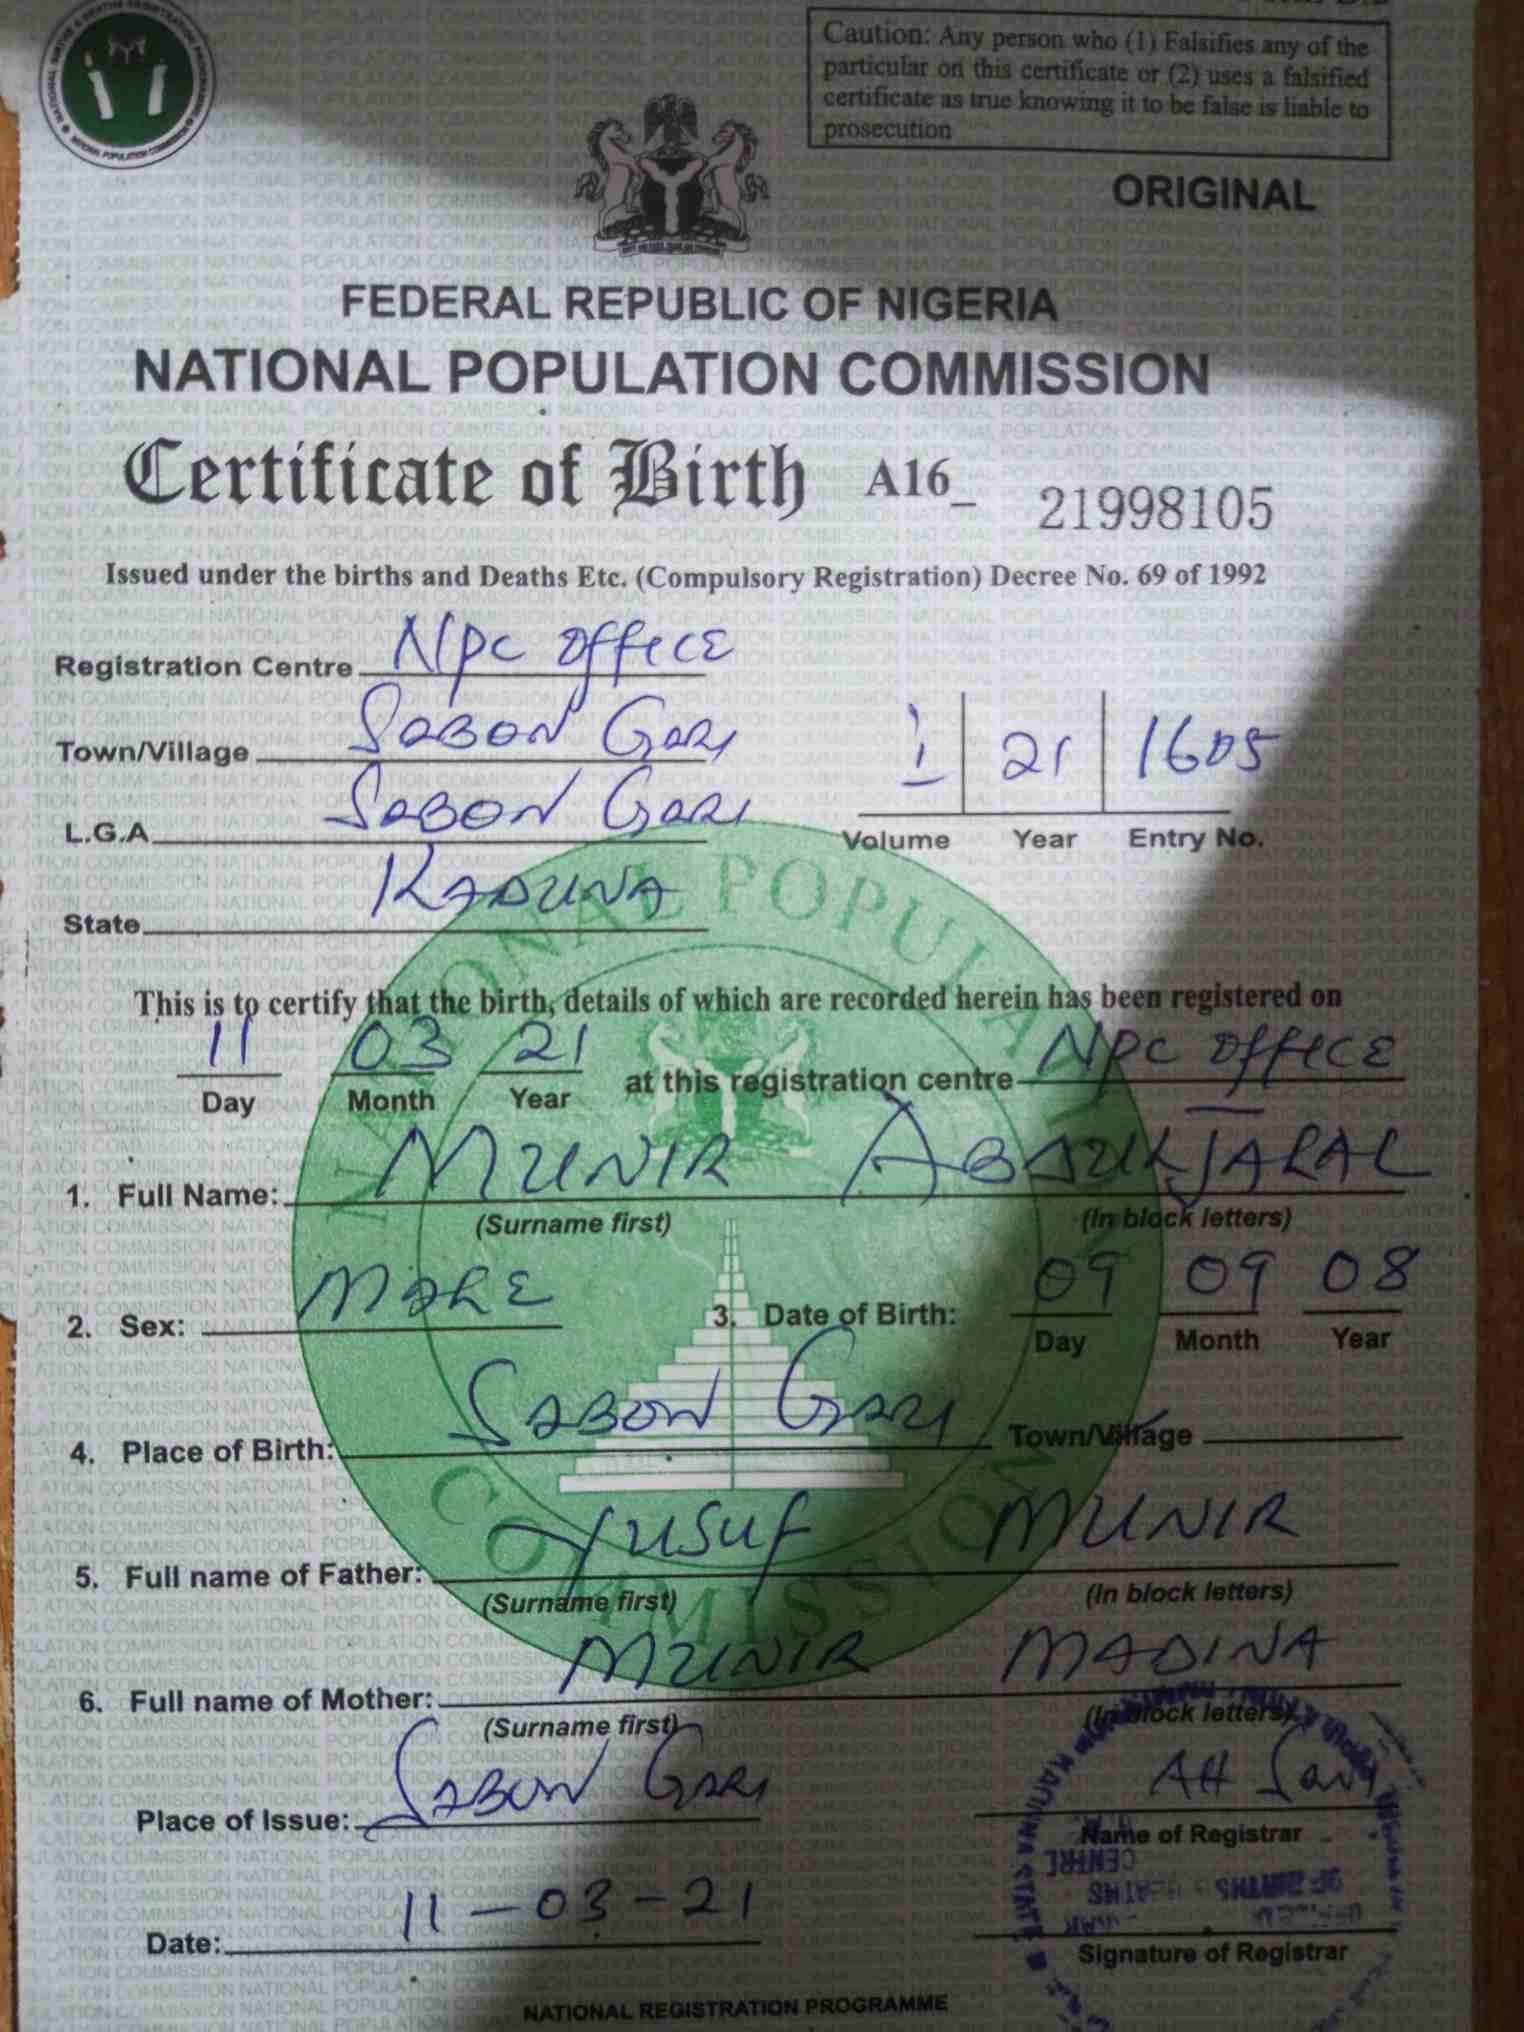 Caution: Any person who (1) Falsifies any of the
particular on this certificate or (2) uses a falsified
certificate as true knowing it to be false is liable to
prosecution
ORIGINAL
FEDERAL REPUBLIC OF NIGERIA
NATIONAL POPULATION COMMISSION
Certificate of Birth A16_ 21998105
Issued under the births and Deaths Etc. (Compulsory Registration) Decree No. 69 of 1992
Registration Centre NPC OFFICE
Town/Village SABON GARI
L.G.A SABON GARI
1 21 1605
Volume Year Entry No.
State KADUNA
NATIONAL POPULATION COMMISSION
This is to certify that the birth, details of which are recorded herein has been registered on
11 03 21 at this registration centre NPC OFFICE
Day Month Year
1. Full Name: MUNIR ABDULJALAL
(Surname first) (In block letters)
2. Sex: MALE 3. Date of Birth: 09 09 08
Day Month Year
4. Place of Birth: SABON GARI Town/Village
5. Full name of Father: YUSUF MUNIR
(Surname first) (In block letters)
6. Full name of Mother: MUNIR MADINA
(Surname first) (In block letters)
Place of Issue: SABON GARI
AH Sani
Name of Registrar
Date: 11-03-21
Signature of Registrar
NATIONAL REGISTRATION PROGRAMME